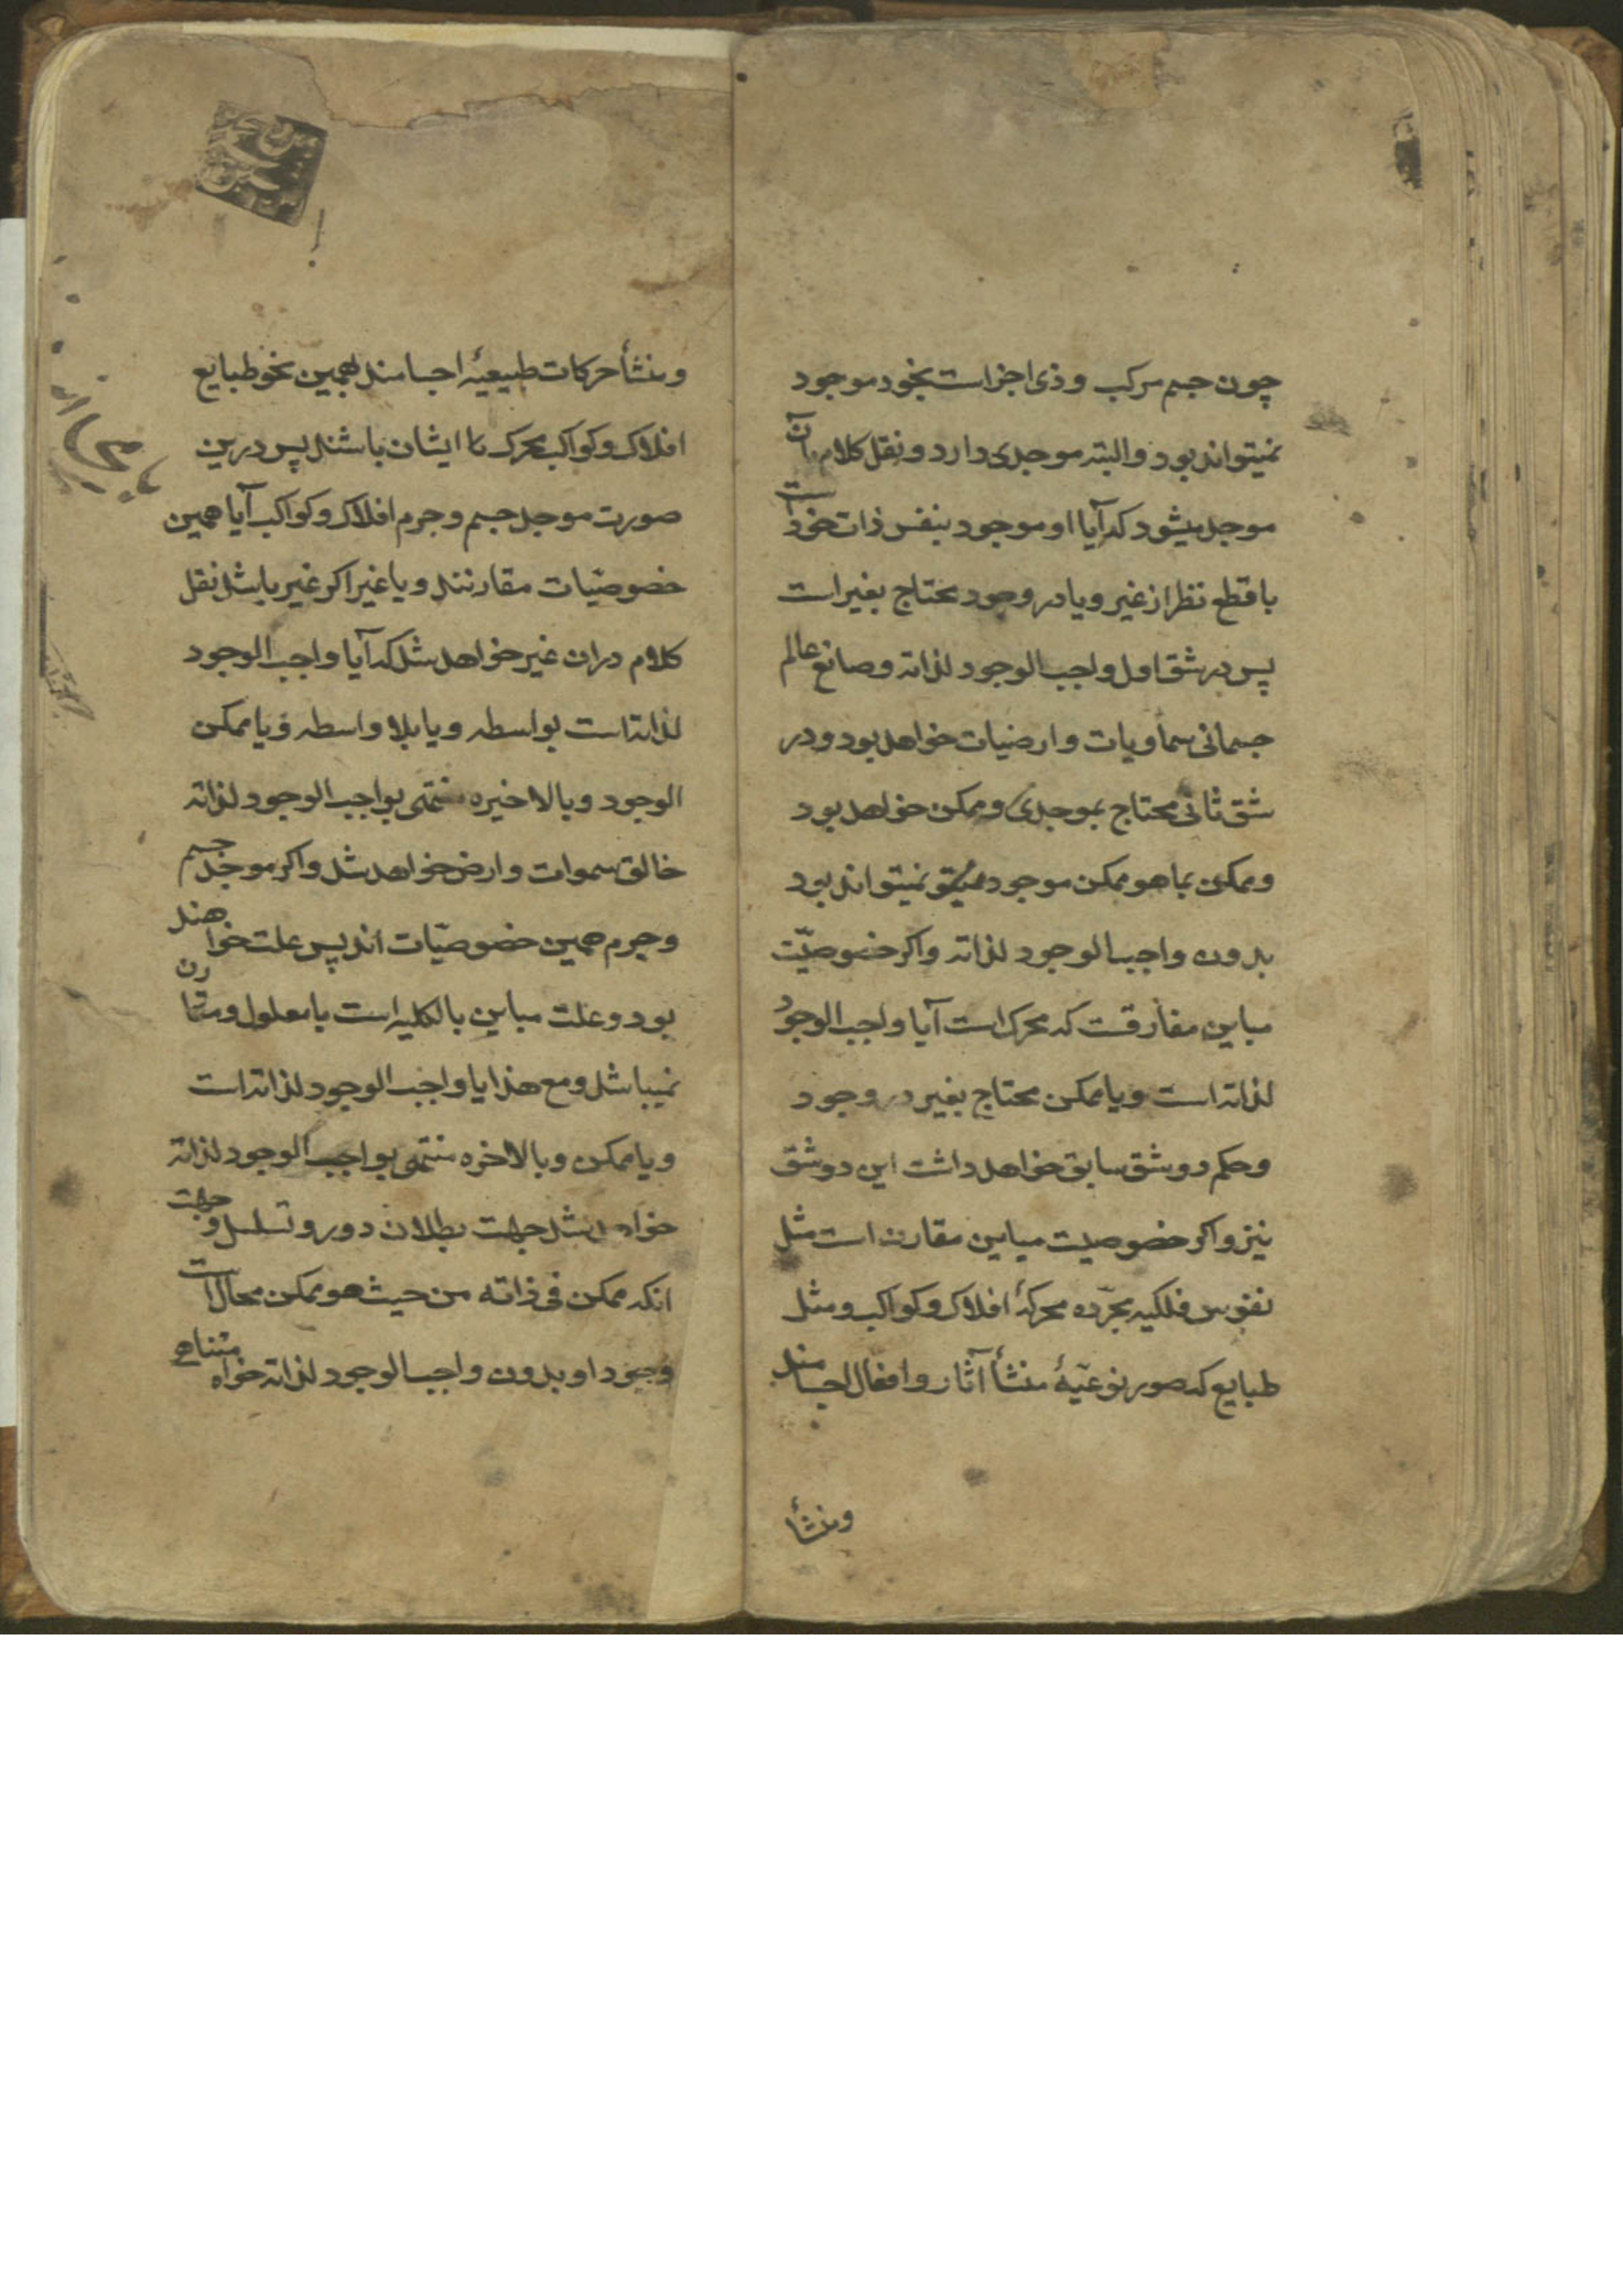 چون جسم مرکب و ذی اجزاست بخود موجود
نمیتواند بود والبته موجدی دارد و نقل کلام در آن
موجد میشود که آیا او موجود بنفس ذات خود است
با قطع نظر از غیر و یا در وجود محتاج بغیر است
پس در شق اول واجب الوجود لذاته و صانع عالم
جسمانی سماویات و ارضیات خواهد بود و در
شق ثانی محتاج بموجدی و ممکن خواهد بود
و ممکن بما هو ممکن موجود نمیتواند بود
بدون واجب الوجود لذاته و اکر خصوصیّت
مباین مفارقست که محرک است آیا واجب الوجود
لذاته است و یا ممکن محتاج بغیر در وجود
و حکم دو شق سابق خواهد داشت این دو شق
نیز و اکر خصوصیت مباین مقارن است مثل
نفوس فلکیه مجرّده محرکهٔ افلاک و کواکب و مثل
طبایع که صور نوعیّهٔ منشأ آثار و افعال اجسامند
و منشأ
و منشأ حرکات طبیعیهٔ اجسامند بهمین نحو طبایع
افلاک و کواکب محرک ایشان باشند پس درین
صورت موجد جسم و جرم افلاک و کواکب آیا همین
خصوصیّات مقارنند و یا غیر اکر غیر باشد نقل
کلام در ان غیر خواهد شد که آیا واجب الوجود
لذاته است بواسطه و یا بلا واسطه و یا ممکن
الوجود و بالاخیره منتهی بواجب الوجود لذاته
خالق سموات و ارض خواهد شد و اکر موجد جسم
و جرم همین خصوصیّات اند پس علت خواهند
بود و علت مباین بالکلیه است با معلول و مقارن
نمیباشد و مع هذا یا واجب الوجود لذاته است
و یا ممکن و بالاخره منتهی بواجب الوجود لذاته
خواهد شد جهت بطلان دور و تسلسل و جهت
انکه ممکن فی ذاته من حیث هو ممکن محال است
وجود او بدون واجب الوجود لذاته خواه متناهی